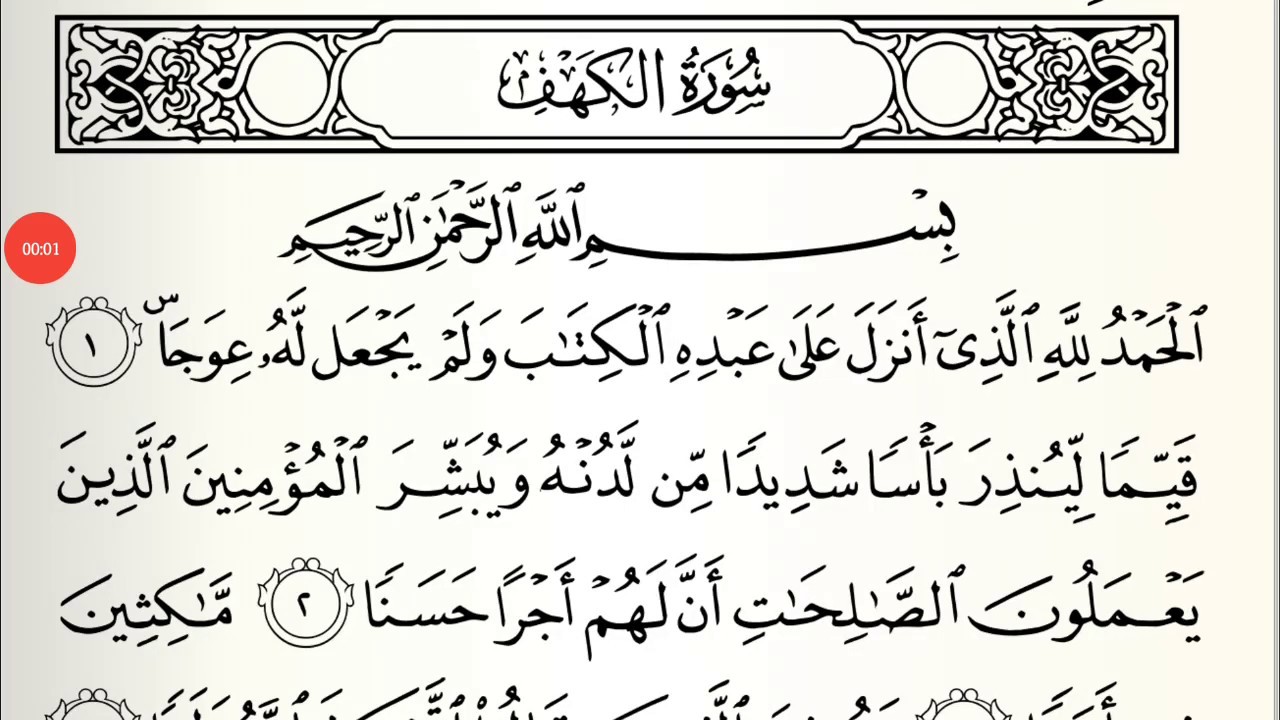 سُورَةُ الكَهْفِ
بِسْمِ ٱللَّهِ ٱلرَّحْمَٰنِ ٱلرَّحِيمِ
00:01
ٱلْحَمْدُ لِلَّهِ ٱلَّذِىٓ أَنزَلَ عَلَىٰ عَبْدِهِ ٱلْكِتَٰبَ وَلَمْ يَجْعَل لَّهُۥ عِوَجَاۜ ١
قَيِّمًا لِّيُنذِرَ بَأْسًا شَدِيدًا مِّن لَّدُنْهُ وَيُبَشِّرَ ٱلْمُؤْمِنِينَ ٱلَّذِينَ
يَعْمَلُونَ ٱلصَّٰلِحَٰتِ أَنَّ لَهُمْ أَجْرًا حَسَنًا ٢ مَّٰكِثِينَ